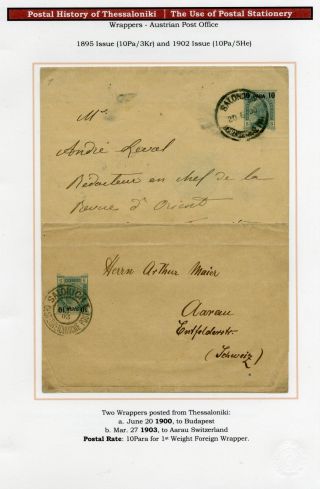 Postal History of Thessaloniki | The Use of Postal Stationery
Wrappers - Austrian Post Office
1895 Issue (10Pa/3Kr) and 1902 Issue (10Pa/5He)
10 PARA 10
SALONICH
Mr.
André Leval
Rédacteur en chef de la
Revue d'Orient
Herrn Arthur Maier
Aarau
Entfelderstr.
(Schweiz)
SALONICH
10 PARA 10
Two Wrappers posted from Thessaloniki:
a. June 20 1900, to Budapest
b. Mar. 27 1903, to Aarau Switzerland
Postal Rate: 10Para for 1st Weight Foreign Wrapper.